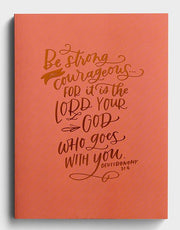 Be strong
& courageous...
FOR it is the
LORD YOUR
GOD
WHO goes
WITH YOU.
DEUTERONOMY
31:6